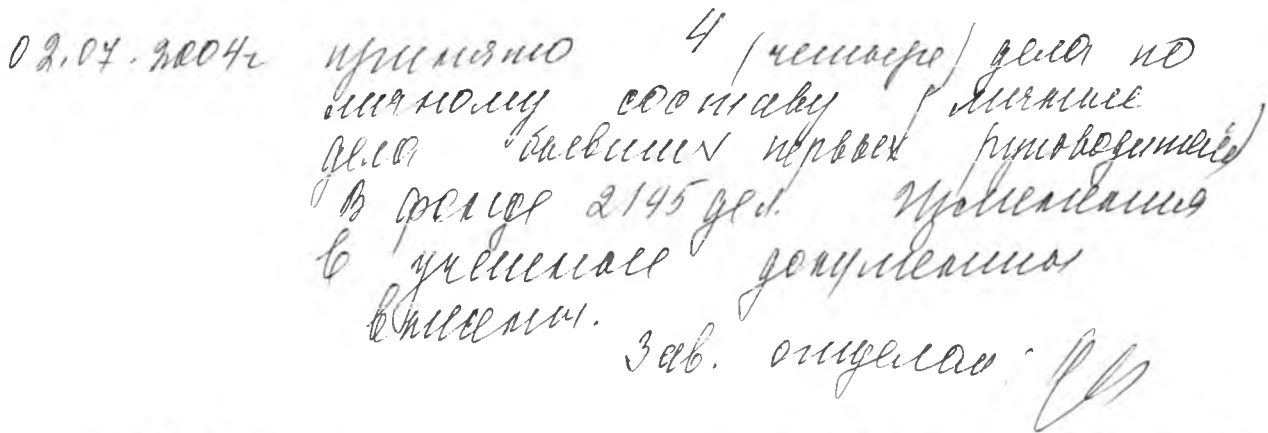 02.07.2004г принято 4 (четыре) дела по
личному составу (личные
дела бывших первых руководителей)
В фонде 2145 дел. Изменения
в учетные документы
внесены.
Зав. отделом